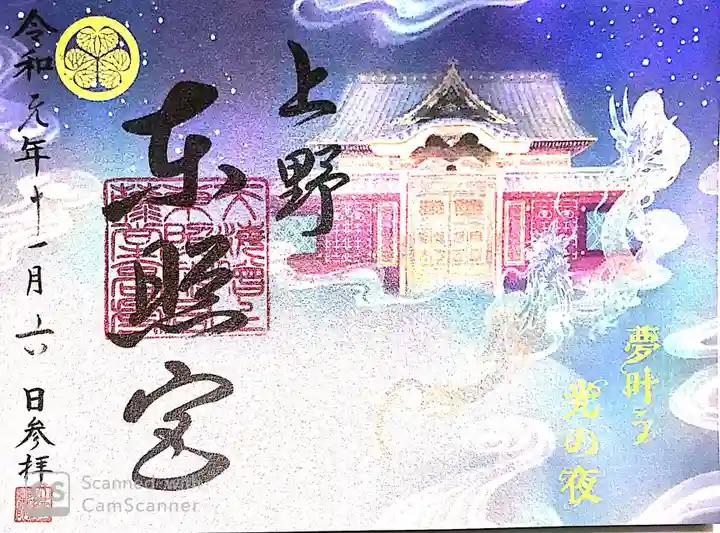 上野
東照宮
夢叶う
光の夜
令和元年十一月十六日参拝
CS Scanned with
CamScanner